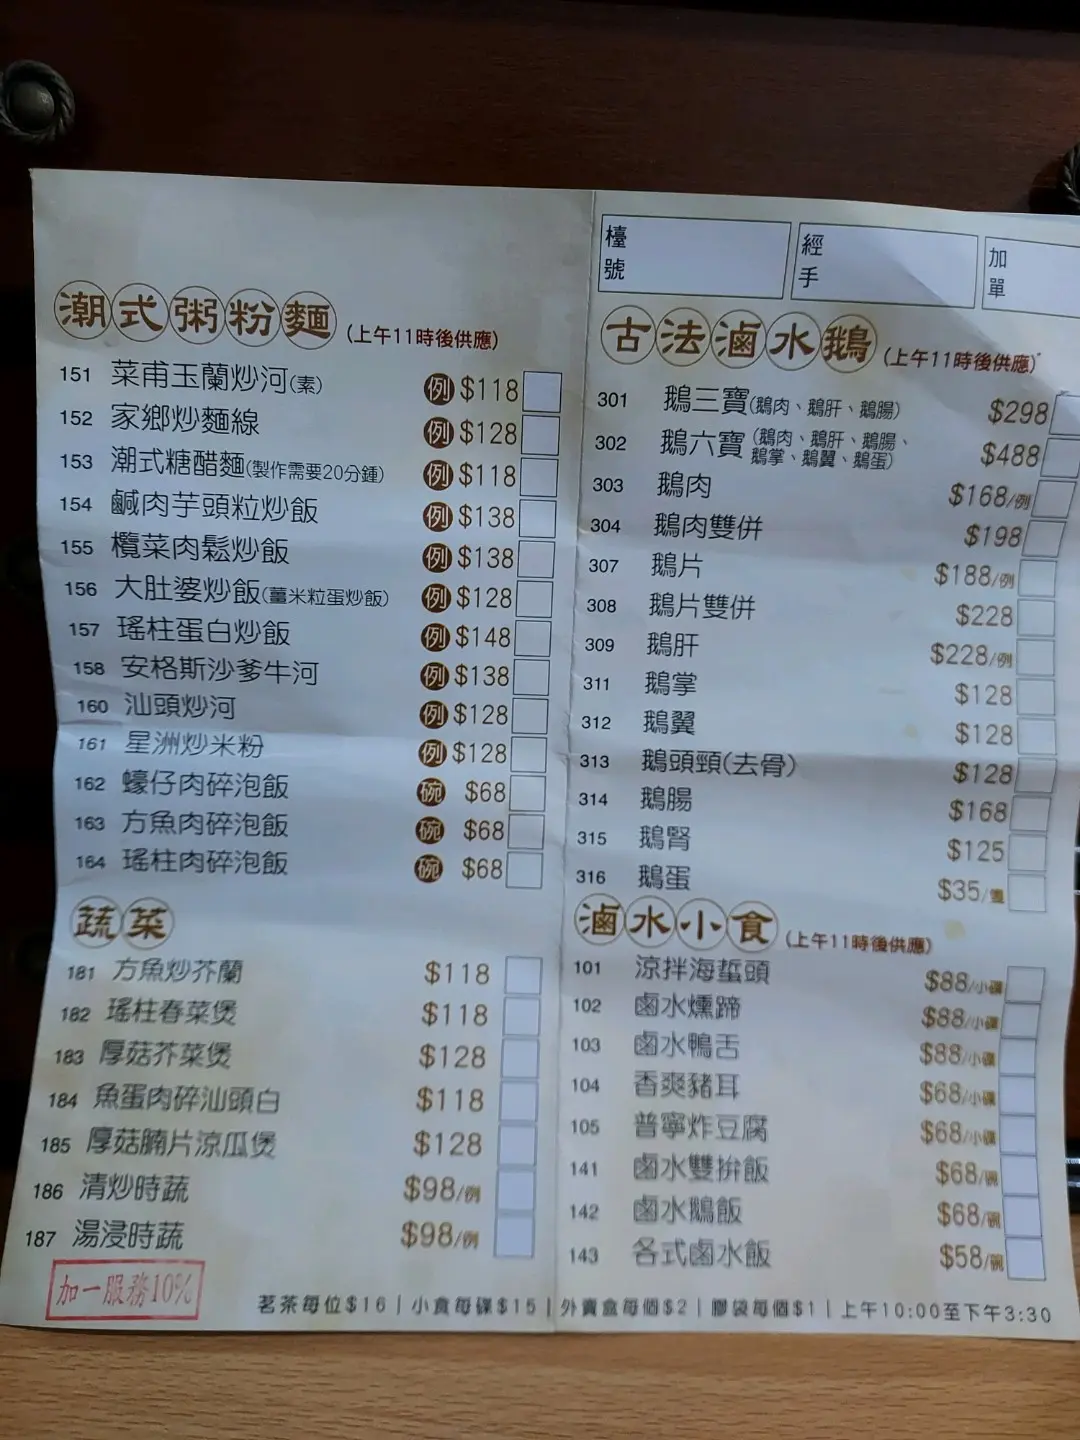 潮式粥粉麵 (上午11時後供應)
151 菜甫玉蘭炒河(素) 例 $118
152 家鄉炒麵線 例 $128
153 潮式糖醋麵(製作需要20分鍾) 例 $118
154 鹹肉芋頭粒炒飯 例 $138
155 欖菜肉鬆炒飯 例 $138
156 大肚婆炒飯(薑米粒蛋炒飯) 例 $128
157 瑤柱蛋白炒飯 例 $148
158 安格斯沙爹牛河 例 $138
160 汕頭炒河 例 $128
161 星洲炒米粉 例 $128
162 蠔仔肉碎泡飯 碗 $68
163 方魚肉碎泡飯 碗 $68
164 瑤柱肉碎泡飯 碗 $68
蔬菜
181 方魚炒芥蘭 $118
182 瑤柱春菜煲 $118
183 厚菇芥菜煲 $128
184 魚蛋肉碎汕頭白 $118
185 厚菇腩片涼瓜煲 $128
186 清炒時蔬 $98/例
187 湯浸時蔬 $98/例
加一服務10%
檯號 經手 加單
古法滷水鵝 (上午11時後供應)
301 鵝三寶(鵝肉、鵝肝、鵝腸) $298
302 鵝六寶(鵝肉、鵝肝、鵝腸、
鵝掌、鵝翼、鵝蛋) $488
303 鵝肉 $168/例
304 鵝肉雙併 $198
307 鵝片 $188/例
308 鵝片雙併 $228
309 鵝肝 $228/例
311 鵝掌 $128
312 鵝翼 $128
313 鵝頭頸(去骨) $128
314 鵝腸 $168
315 鵝腎 $125
316 鵝蛋 $35/隻
滷水小食 (上午11時後供應)
101 涼拌海蜇頭 $88/小碟
102 鹵水燻蹄 $88/小碟
103 鹵水鴨舌 $88/小碟
104 香爽豬耳 $68/小碟
105 普寧炸豆腐 $68/小碟
141 鹵水雙拚飯 $68/碗
142 鹵水鵝飯 $68/碗
143 各式鹵水飯 $58/碗
茗茶每位$16 | 小食每碟$15 | 外賣盒每個$2 | 膠袋每個$1 | 上午10:00至下午3:30